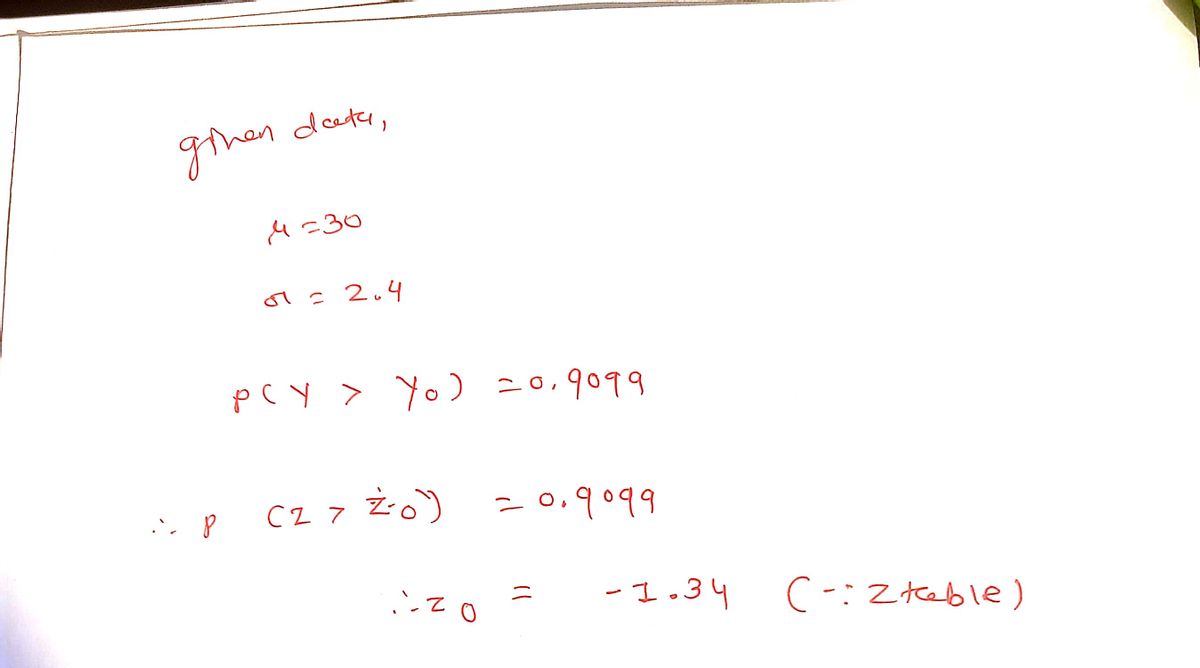 given data,
μ = 30
σ = 2.4
P(Y > Y₀) = 0.9099
∴ P (Z > Z₀) = 0.9099
∴ Z₀ = -1.34 (∵ Z table)